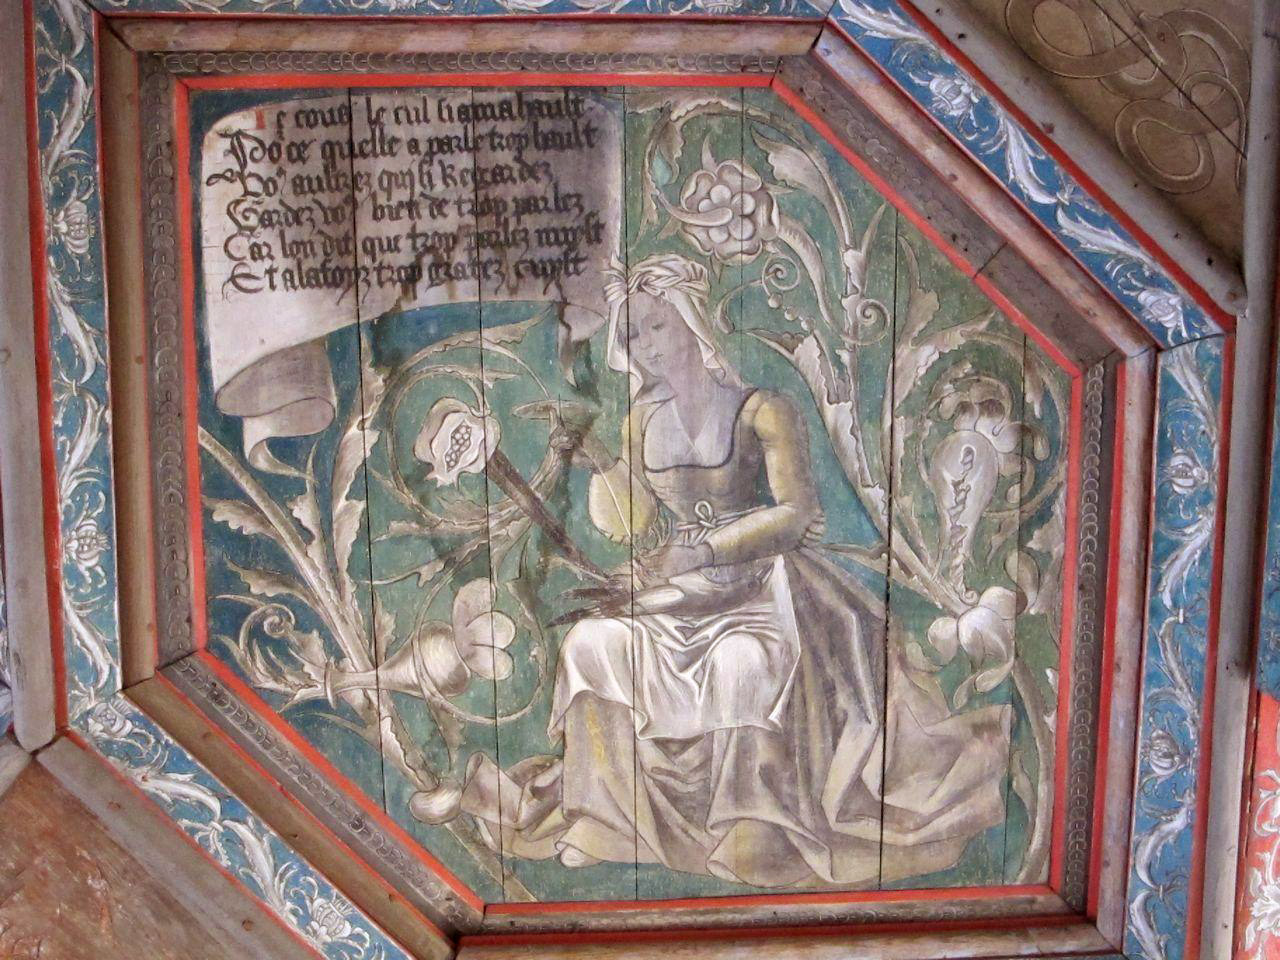 cous le cul si ama hault
Po' ce quelle a parle trop hault
Vo' aultrez qui li Regardez
Gardez vo' bien de trop parlez
Car lon dit que trop parlez nuyst
Et alafoyz trop gratez cuyst